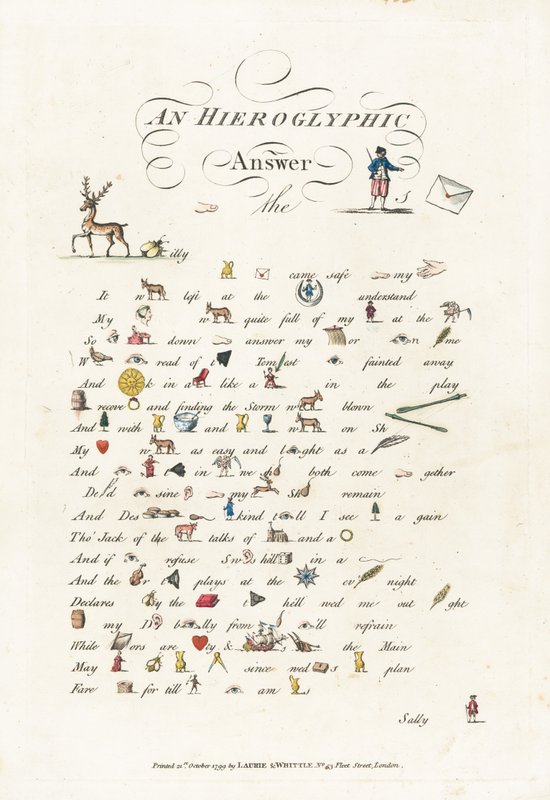 AN HIEROGLYPHIC
Answer
the s
illy
came safe my
It w left at the understand
My w quite full of my at the
So down answer my or n me
W read of t Tem est fainted away
And k in a like a in the play
recove and finding the Storm w blown
And with and w on Sh
My w as easy and l ght as a
And t in we sh both come gether
De d sine my Sh remain
And Des kind t ll I see a gain
Tho' Jack of the talks of and a
And if refuse Sw s hell in a
And the r t plays at the ev night
Declares the t hell wed me out ght
my D b lly from ll refrain
While ors are ty & the Main
May since wed s plan
Fare for till am s
Sally
Printed 21st October 1799 by LAURIE & WHITTLE, No. 53 Fleet Street, London.